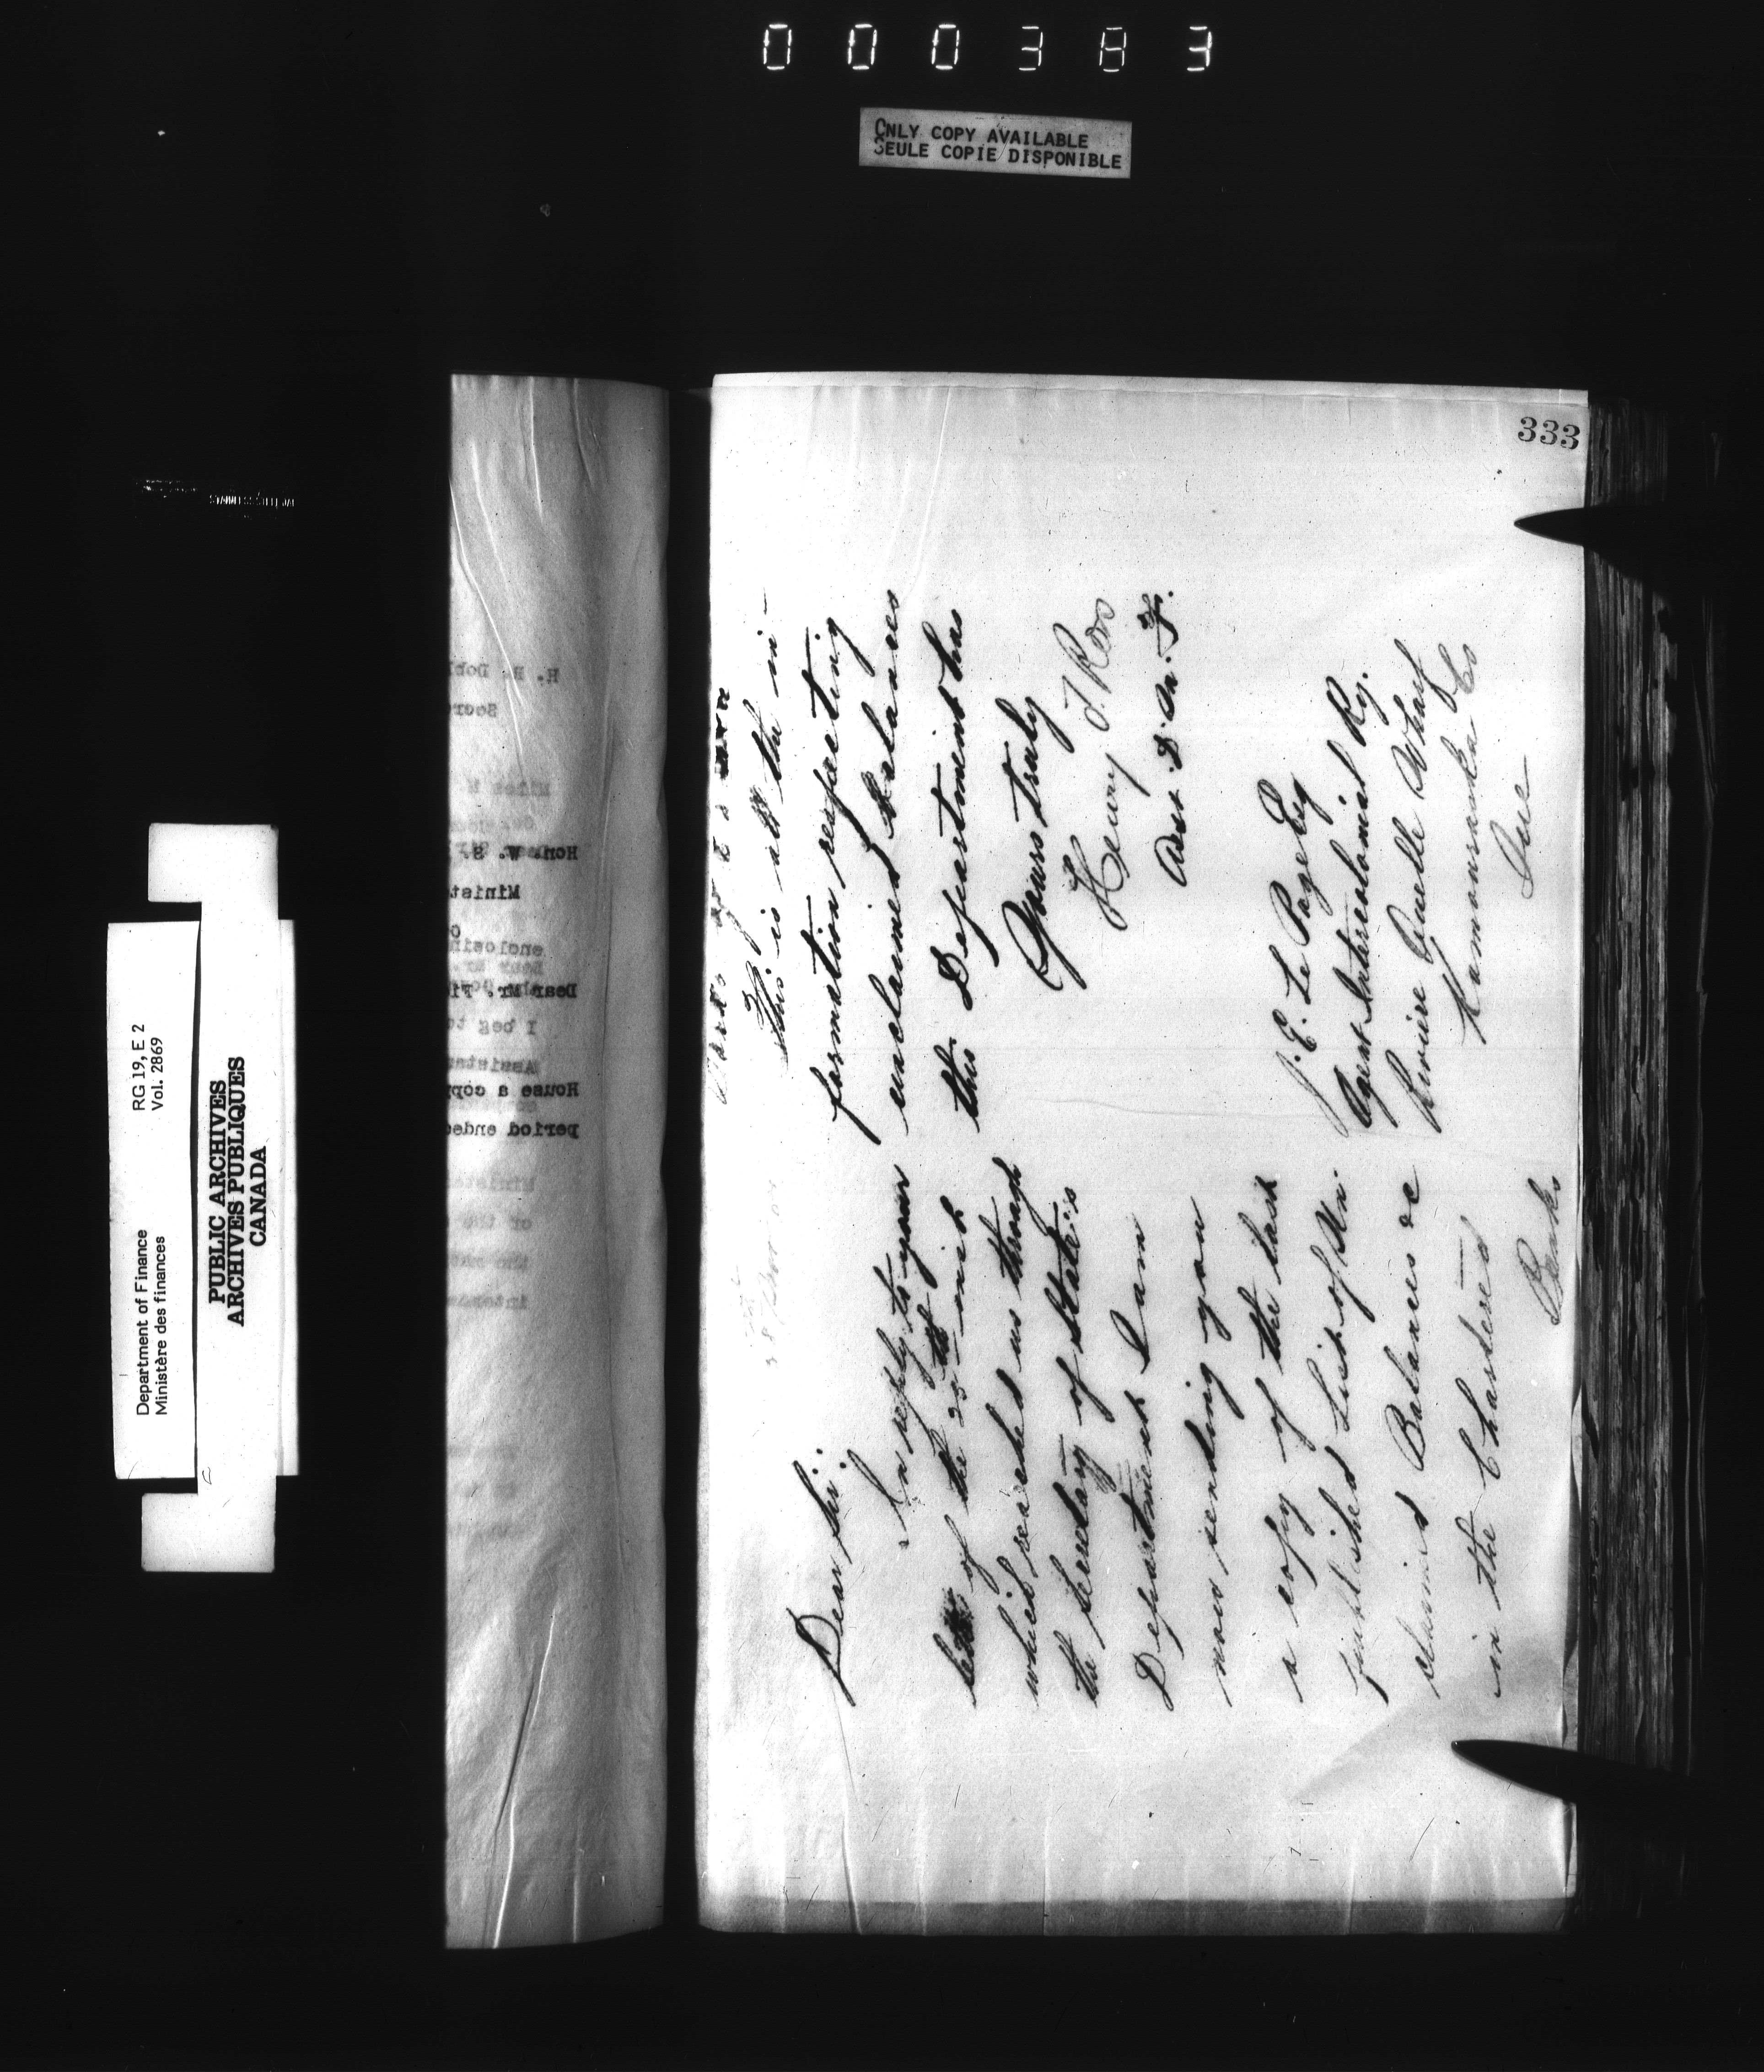 000383
ONLY COPY AVAILABLE
SEULE COPIE DISPONIBLE
Department of Finance
Ministère des finances
RG 19, E 2
Vol. 2869
PUBLIC ARCHIVES
ARCHIVES PUBLIQUES
CANADA
333
Dear Sir.
In reply to your
of the 25th
which reached us through
the Secretary of State's
Department I am
now sending you
a copy of the last
published List of Un-
claimed Balances &c
in the Chartered
Banks
This is all the in-
formation respecting
unclaimed balances
this Department has
Yours truly
Henry T Ross
Asst. D. M. F.
J. E. Le Page Esq
Agent Intercolonial Ry.
Riviere Ouelle Wharf
Kamouraska Co
Que
H. B.
Secre
Miles M.
Hon. W. S.
Minist
enclosin
Dear Mr. Fi
I beg to
Assistan
House a copy
period ended